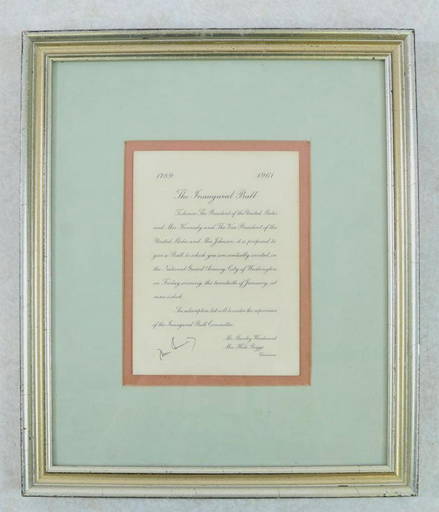 1789 1961
The Inaugural Ball
To honor The President of the United States
and Mrs Kennedy and The Vice President of the
United States and Mrs Johnson, it is proposed to
give a Ball, to which you are cordially invited, in
the National Guard Armory, City of Washington
on Friday evening, the twentieth of January, at
nine o'clock
The subscription list will be under the supervision
of the Inaugural Ball Committee
Mr Stanley Woodward
Mrs Hale Boggs